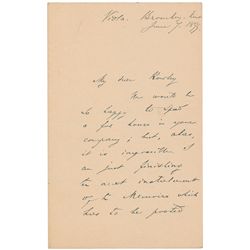 Viola, Bromley, Kent
June 7. 189
My dear Rowley
We would be
so happy to spend
a few hours in your
company; but, alas,
it is impossible. I
am just finishing
the next instalment
of the Memoirs which
has to be posted